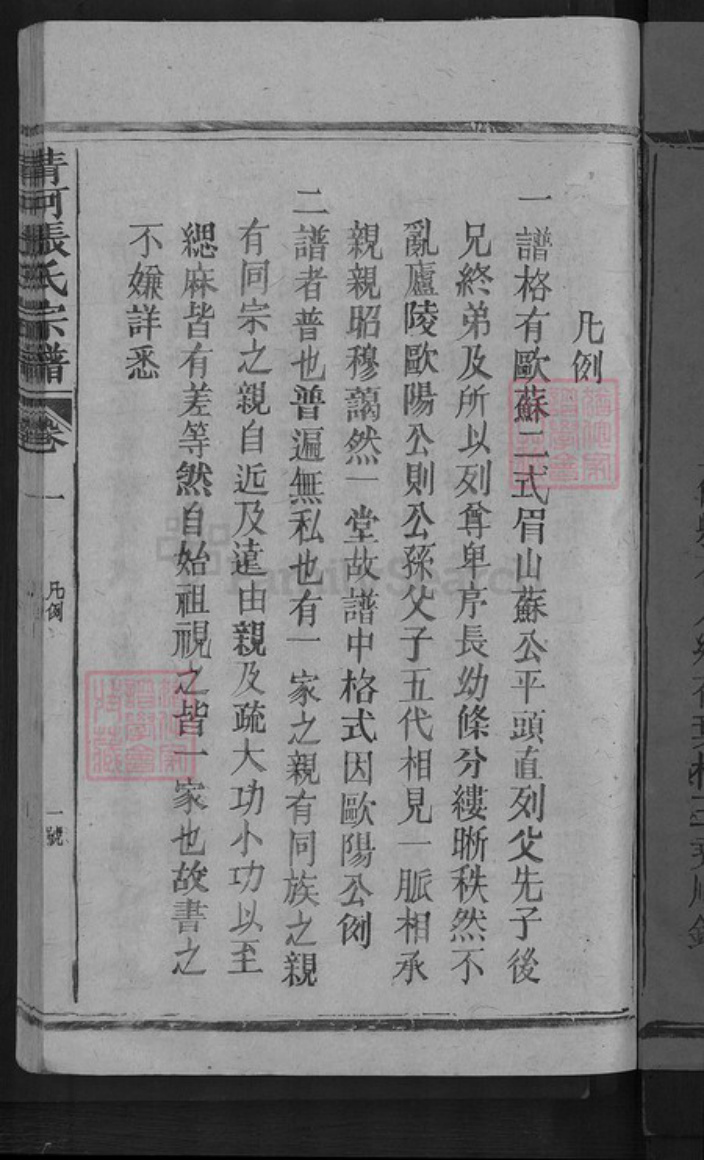 凡例
一譜格有歐蘇二式眉山蘇公平頭直列父先子後
兄終弟及所以列尊卑序長幼條分縷晰秩然不
亂廬陵歐陽公則公孫父子五代相見一脈相承
親親昭穆藹然一堂故譜中格式因歐陽公例
二譜者普也普遍無私也有一家之親有同族之親
有同宗之親自近及遠由親及疏大功小功以至
緦麻皆有差等然自始祖視之皆一家也故書之
不嫌詳悉
清河張氏宗譜
卷一
凡例
一號
FamilySearch